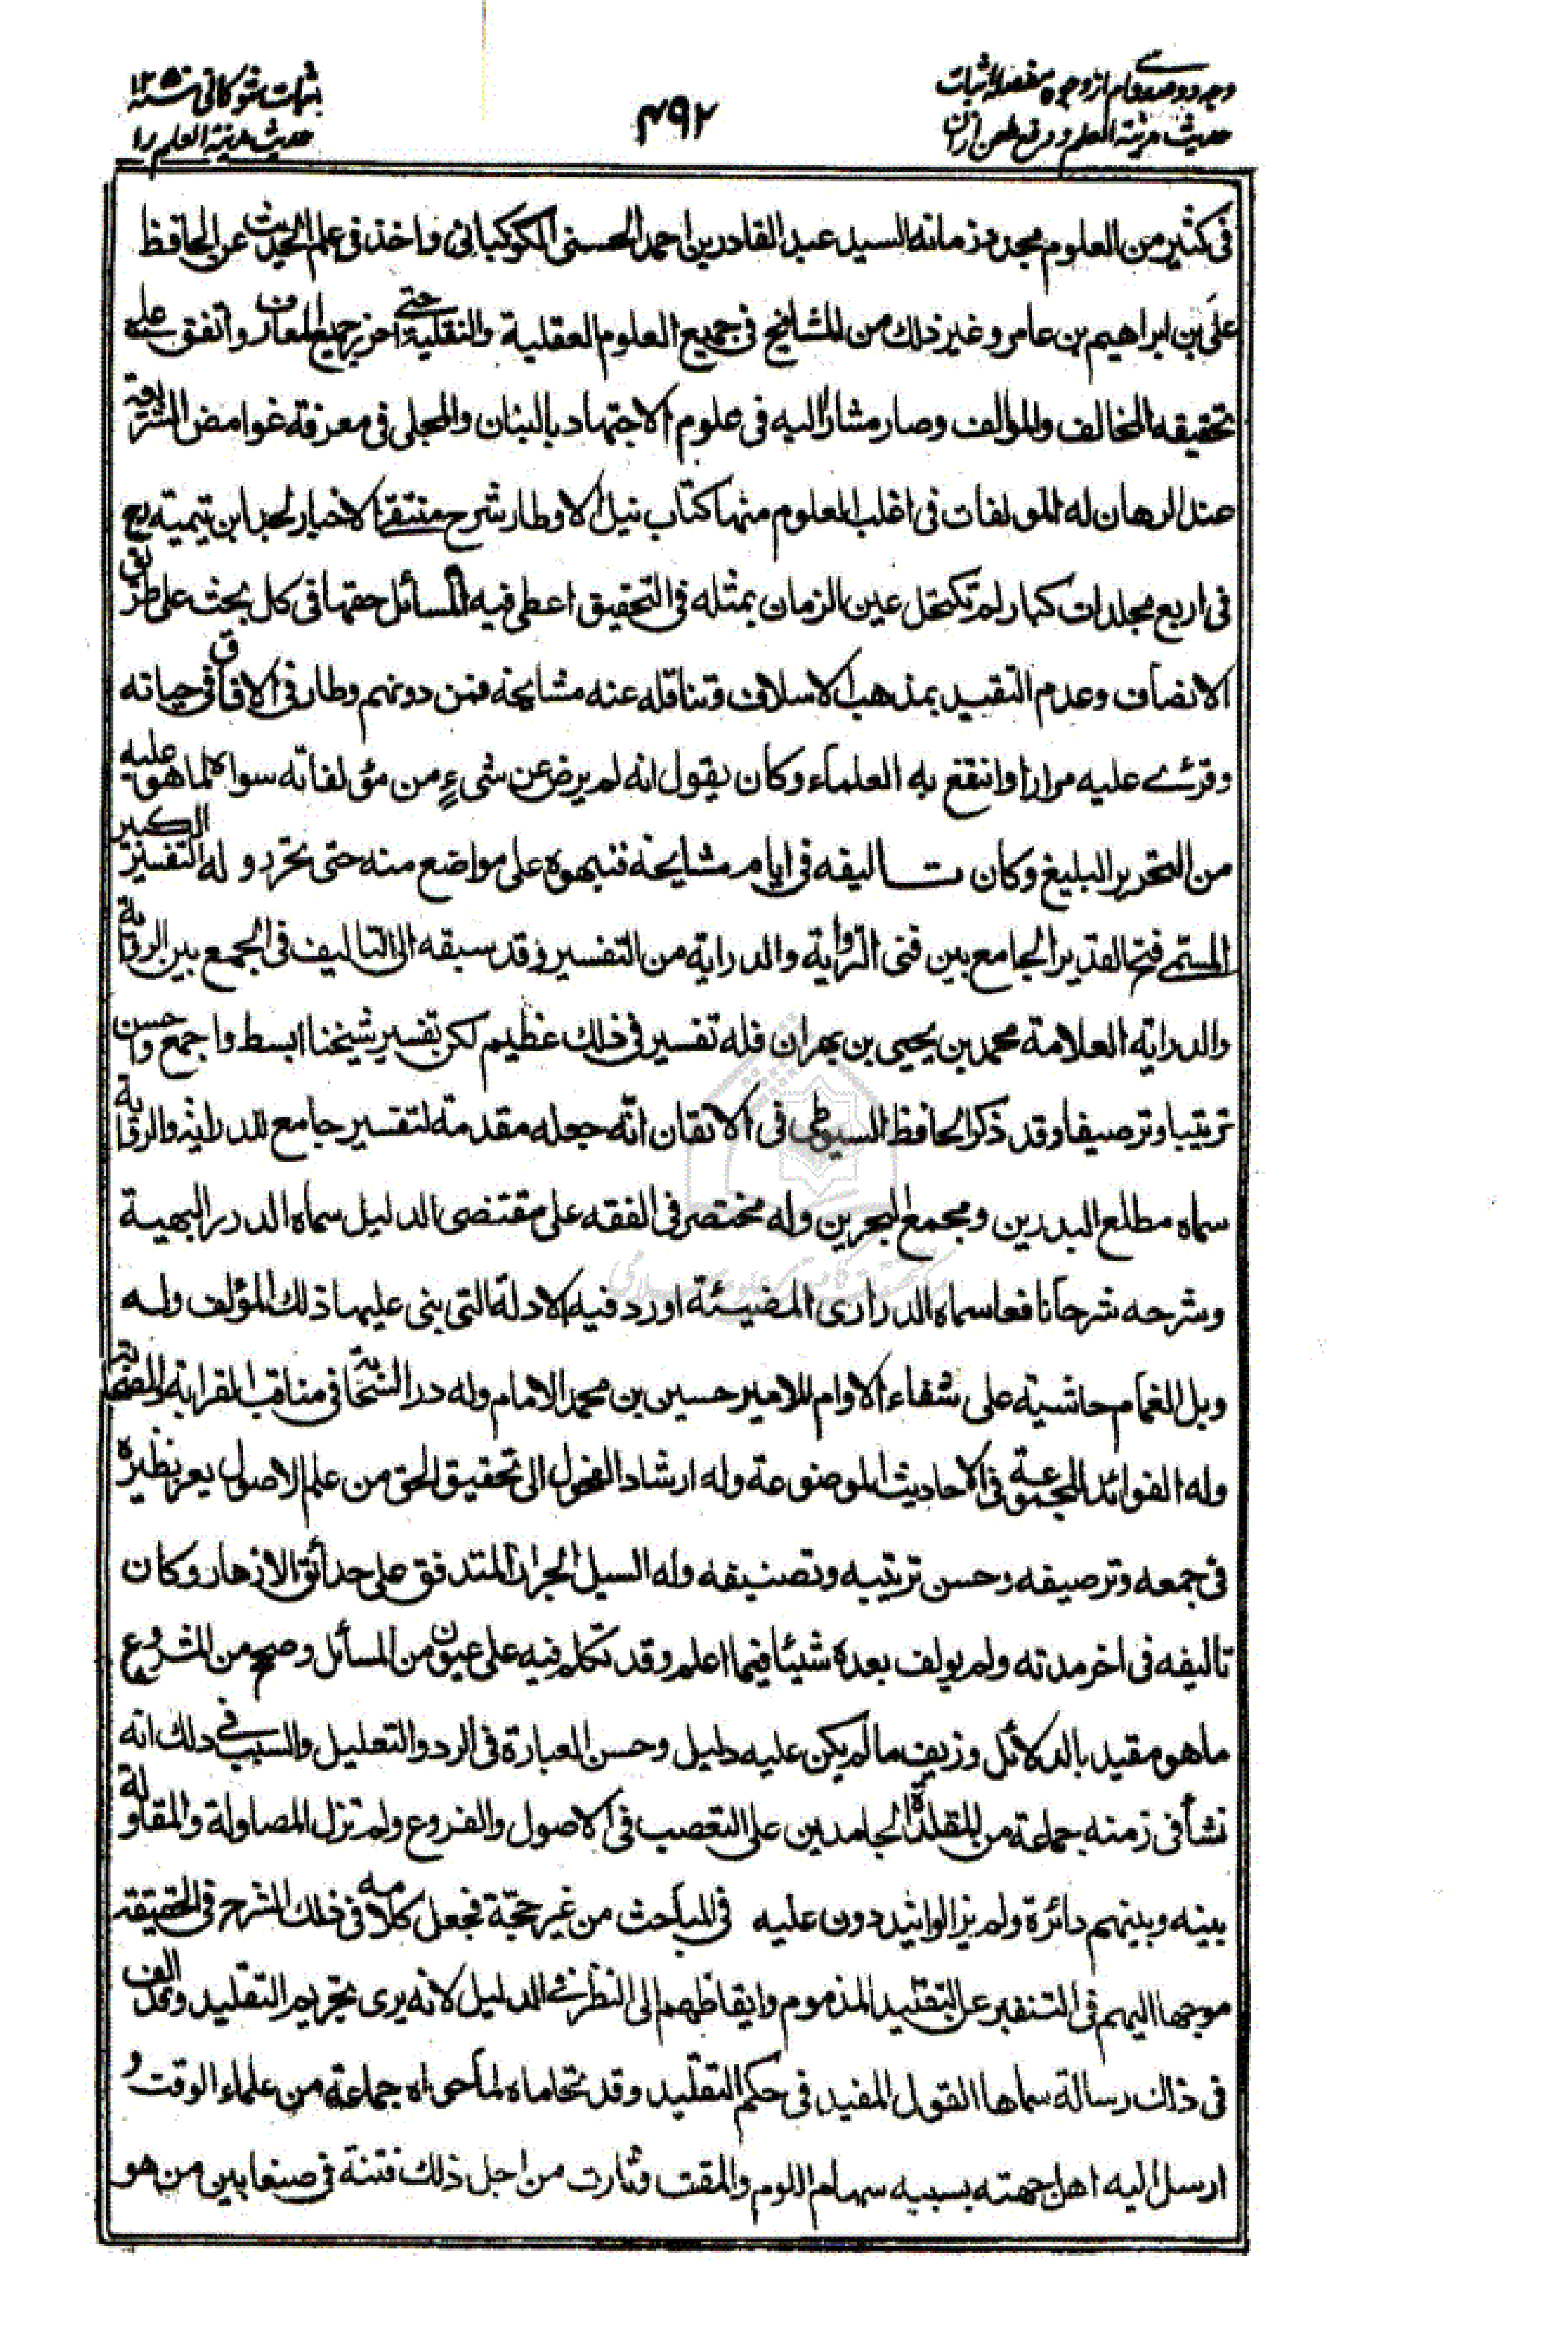 وجه دو صد و ام از وجوه مفصله اثبات
حديث مدينة العلم و دفع طعن ازان
۴۹۲
اثبات شوكانى سنه ۱۲۵۰
حديث مدينة العلم را
فى كثير من العلوم مجدد زمانه السيد عبد القادر بن احمد الحسنى الكوكبانى واخذ فى علم الحديث عن الحافظ
على بن ابراهيم بن عامر وغير ذلك من المشائخ فى جميع العلوم العقلية والنقلية حتى احرز جميع المعارف واتفق على
تحقيقه المخالف والموالف وصار مشارا اليه فى علوم الاجتهاد بالبنان والمجلى فى معرفة غوامض الشريعة
عند الرهان له المولفات فى اغلب العلوم منها كتاب نيل الاوطار شرح منتقى الاخبار لجد ابن تيمية
فى اربع مجلدات كبار لم تكتحل عين الزمان بمثله فى التحقيق اعطى فيه المسائل حقها فى كل بحث على طريق
الانصاف وعدم التقييد بمذهب الاسلاف وتناقله عنه مشايخه فمن دونهم وطار فى الافاق فى حياته
وقرئ عليه مرارا وانتفع به العلماء وكان يقول انه لم يرض عن شىء من مؤلفاته سواه لما هو عليه
من التحرير البليغ وكان تاليفه فى ايام مشايخه فنبهوه على مواضع منه حتى تحرر وله التفسير الكبير
المسمى فتح القدير الجامع بين فنى الرواية والدراية من التفسير وقد سبقه الى التاليف فى الجمع بين الرواية
والدراية العلامة محمد بن يحيى بن بهران فله تفسير فى ذلك عظيم لكن تفسير شيخنا ابسط واجمع واحسن
ترتيبا وترصيفا وقد ذكر الحافظ السيوطى فى الاتقان انه جعله مقدمة لتفسير جامع للدراية والرواية
سماه مطلع البدرين ومجمع البحرين وله مختصر فى الفقه على مقتضى الدليل سماه الدرر البهية
وشرحه شرحا نافعا سماه الدرارى المضيئة اورد فيه الادلة التى بنى عليها ذلك المؤلف وله
وبل الغمام حاشية على شفاء الاوام للامير حسين بن محمد الامام وله در السحابة فى مناقب القرابة والصحابة
وله الفوائد المجموعة فى الاحاديث الموضوعة وله ارشاد الفحول الى تحقيق الحق من علم الاصول يعز نظيره
فى جمعه وترصيفه وحسن ترتيبه وتصنيفه وله السيل الجرار المتدفق على حدائق الازهار وكان
تاليفه فى اخر مدته ولم يولف بعده شيئا فيما اعلم وقد تكلم فيه على عيون من المسائل وصحح من المشروع
ما هو مقيد بالدلائل وزيف ما لم يكن عليه دليل وحسن العبارة فى الرد والتعليل والسبب فى ذلك انه
نشأ فى زمنه جماعة من المقلدة الجامدين على التعصب فى الاصول والفروع ولم تزل المصاولة والمقاولة
بينه وبينهم دائرة ولم يزالوا ينددون عليه فى المباحث من غير حجة فجعل كلامه فى ذلك الشرح فى الحقيقة
موجها اليهم فى التنفير عن التقليد المذموم وايقاظهم الى النظر فى الدليل لانه يرى تحريم التقليد وقد الف
فى ذلك رسالة سماها القول المفيد فى حكم التقليد وقد تحاماه لما حواه جماعة من علماء الوقت و
ارسل اليه اهل جهته بسببه سهام اللوم والمقت وثارت من اجل ذلك فتنة فى صنعا بين من هو